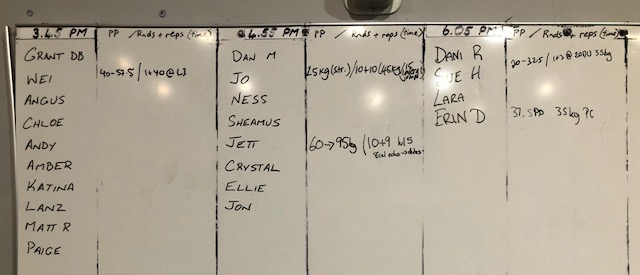 3.45 PM PP / Rnds + reps (time)
GRANT DB
WEI 40-57.5 / 1+40 @ L3
ANGUS
CHLOE
ANDY
AMBER
KATINA
LANZ
MATT R
PAIGE
4.55 PM PP / Rnds + reps (time)
DAN M
JO 25kg (str.) / 10+10 (45kg/15
NESS
SHEAMUS
JETT 60→95kg / 10+9 L15
CRYSTAL
ELLIE
JON
6.05 PM PP / Rnds + reps (time)
DANI R 20-32.5 / 1+3 @ 20(L) 35kg
SUE H
LARA
ERIN D 37.5 PP 35kg PC